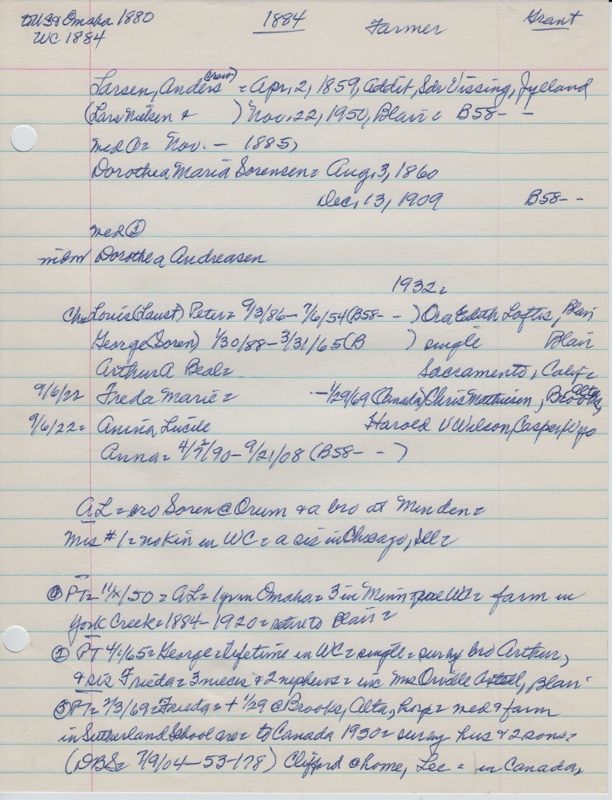 to US & Omaha 1880 1884 Farmer Grant
WC 1884
Larsen, Anders = Apr, 2, 1859, Addit, Sdr Vissing, Jylland
(Lars Nielsen & ) Nov. 22, 1950, Blair = B58- -
med ① = Nov. - 1885,
Dorothea Maria Sorensen = Aug, 3, 1860
Dec, 13, 1909 B58--
med ②
Dorothea Andreasen
1932=
Ch= Louis (Laust) Peter = 9/3/86 - 7/6/54 (B58- - ) Ora Edith Loftis, Blair
George (Soren) 1/30/88 - 3/31/65 (B ) single Blair
Arthur A Beal = Sacramento, Calif =
9/6/22 Freda Marie = - 1/29/69 (Canada) Chris Mathiesen, Brooks, Alta
9/6/22 = Anina Lucile Harold V Wilson, Casper, Wyo
Anna = 4/7/90 - 9/21/08 (B58- - )
AL = bro Soren @ Orum & a bro at Minden =
Mrs #1 = no kin in WC = a sis in Chicago, Ill =
① PT = 11/ /50 = AL = 1 yr in Omaha = 3 in Minn WC = farm in
York Creek = 1884 - 1920 = retire to Blair =
② PT 4/1/65 = George = lifetime in WC = single = surv by bro Arthur,
& sis Frieda = 3 nieces & 2 nephews = inc Mrs Orville , Blair
③ PT = 2/3/69 = Frieda = + 1/29 @ Brooks, Alta, hosp = med & farm
in Sutherland School area = to Canada 1930 = surv by hus & 2 sons =
(DBS = 7/9/04 - 53-178) Clifford @ home, Lee = in Canada,